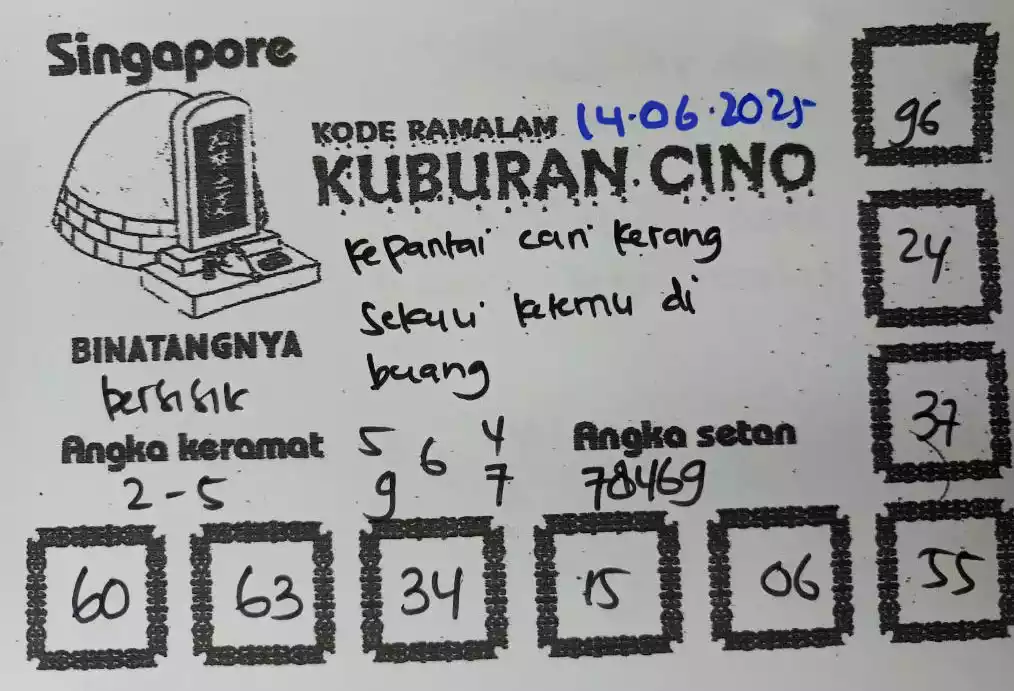 Singapore
KODE RAMALAM 14.06.2025
KUBURAN CINO
kepantai cari kerang
Sekali ketemu di
buang
BINATANGNYA
bersisik
Angka keramat
2-5
5 4
6
9 7
Angka setan
78469
96
24
37
55
60 63 34 15 06